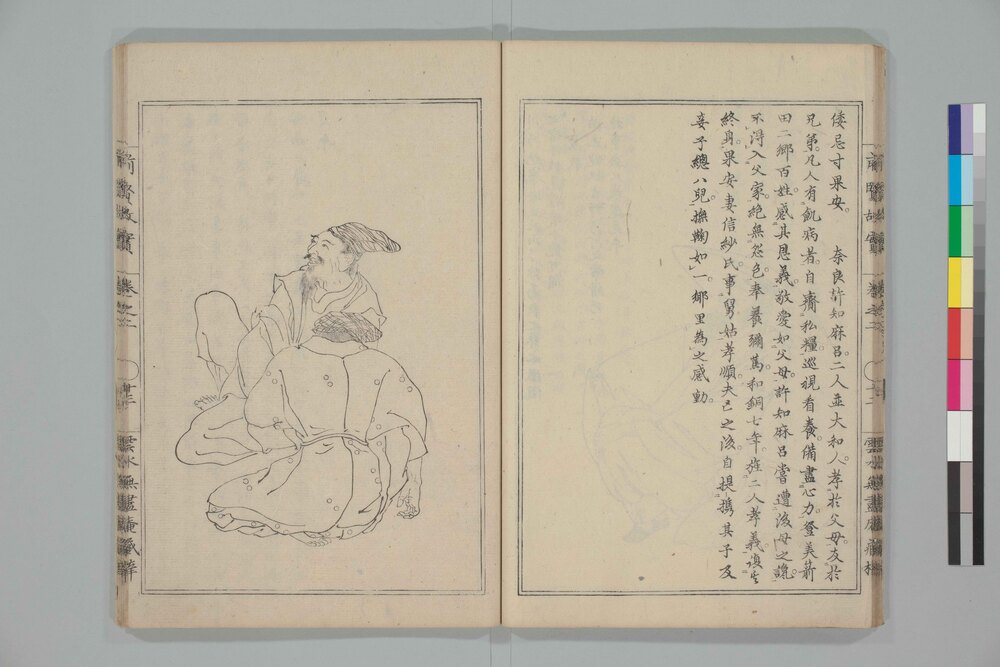 倭忌寸果安。　奈良許知麻呂二人並大和人。孝於父母友於
兄弟。凡人有飢病者自齎私糧巡視看養。備盡心力。登美箭
田二鄉百姓。感其恩義敬愛如父母。許知麻呂嘗遭後母之讒。
不得入父家。絶無怨色。奉養彌篤。和銅七年旌二人孝義復其
終身。果安妻信紗氏。事舅姑孝順。夫亡之後。自提攜其子及
妾子總八兒。撫鞠如一。鄉里為之感動。
前賢故實
卷之二
雲水無盡庵藏梓
前賢故實
卷之二
雲水無盡庵藏梓